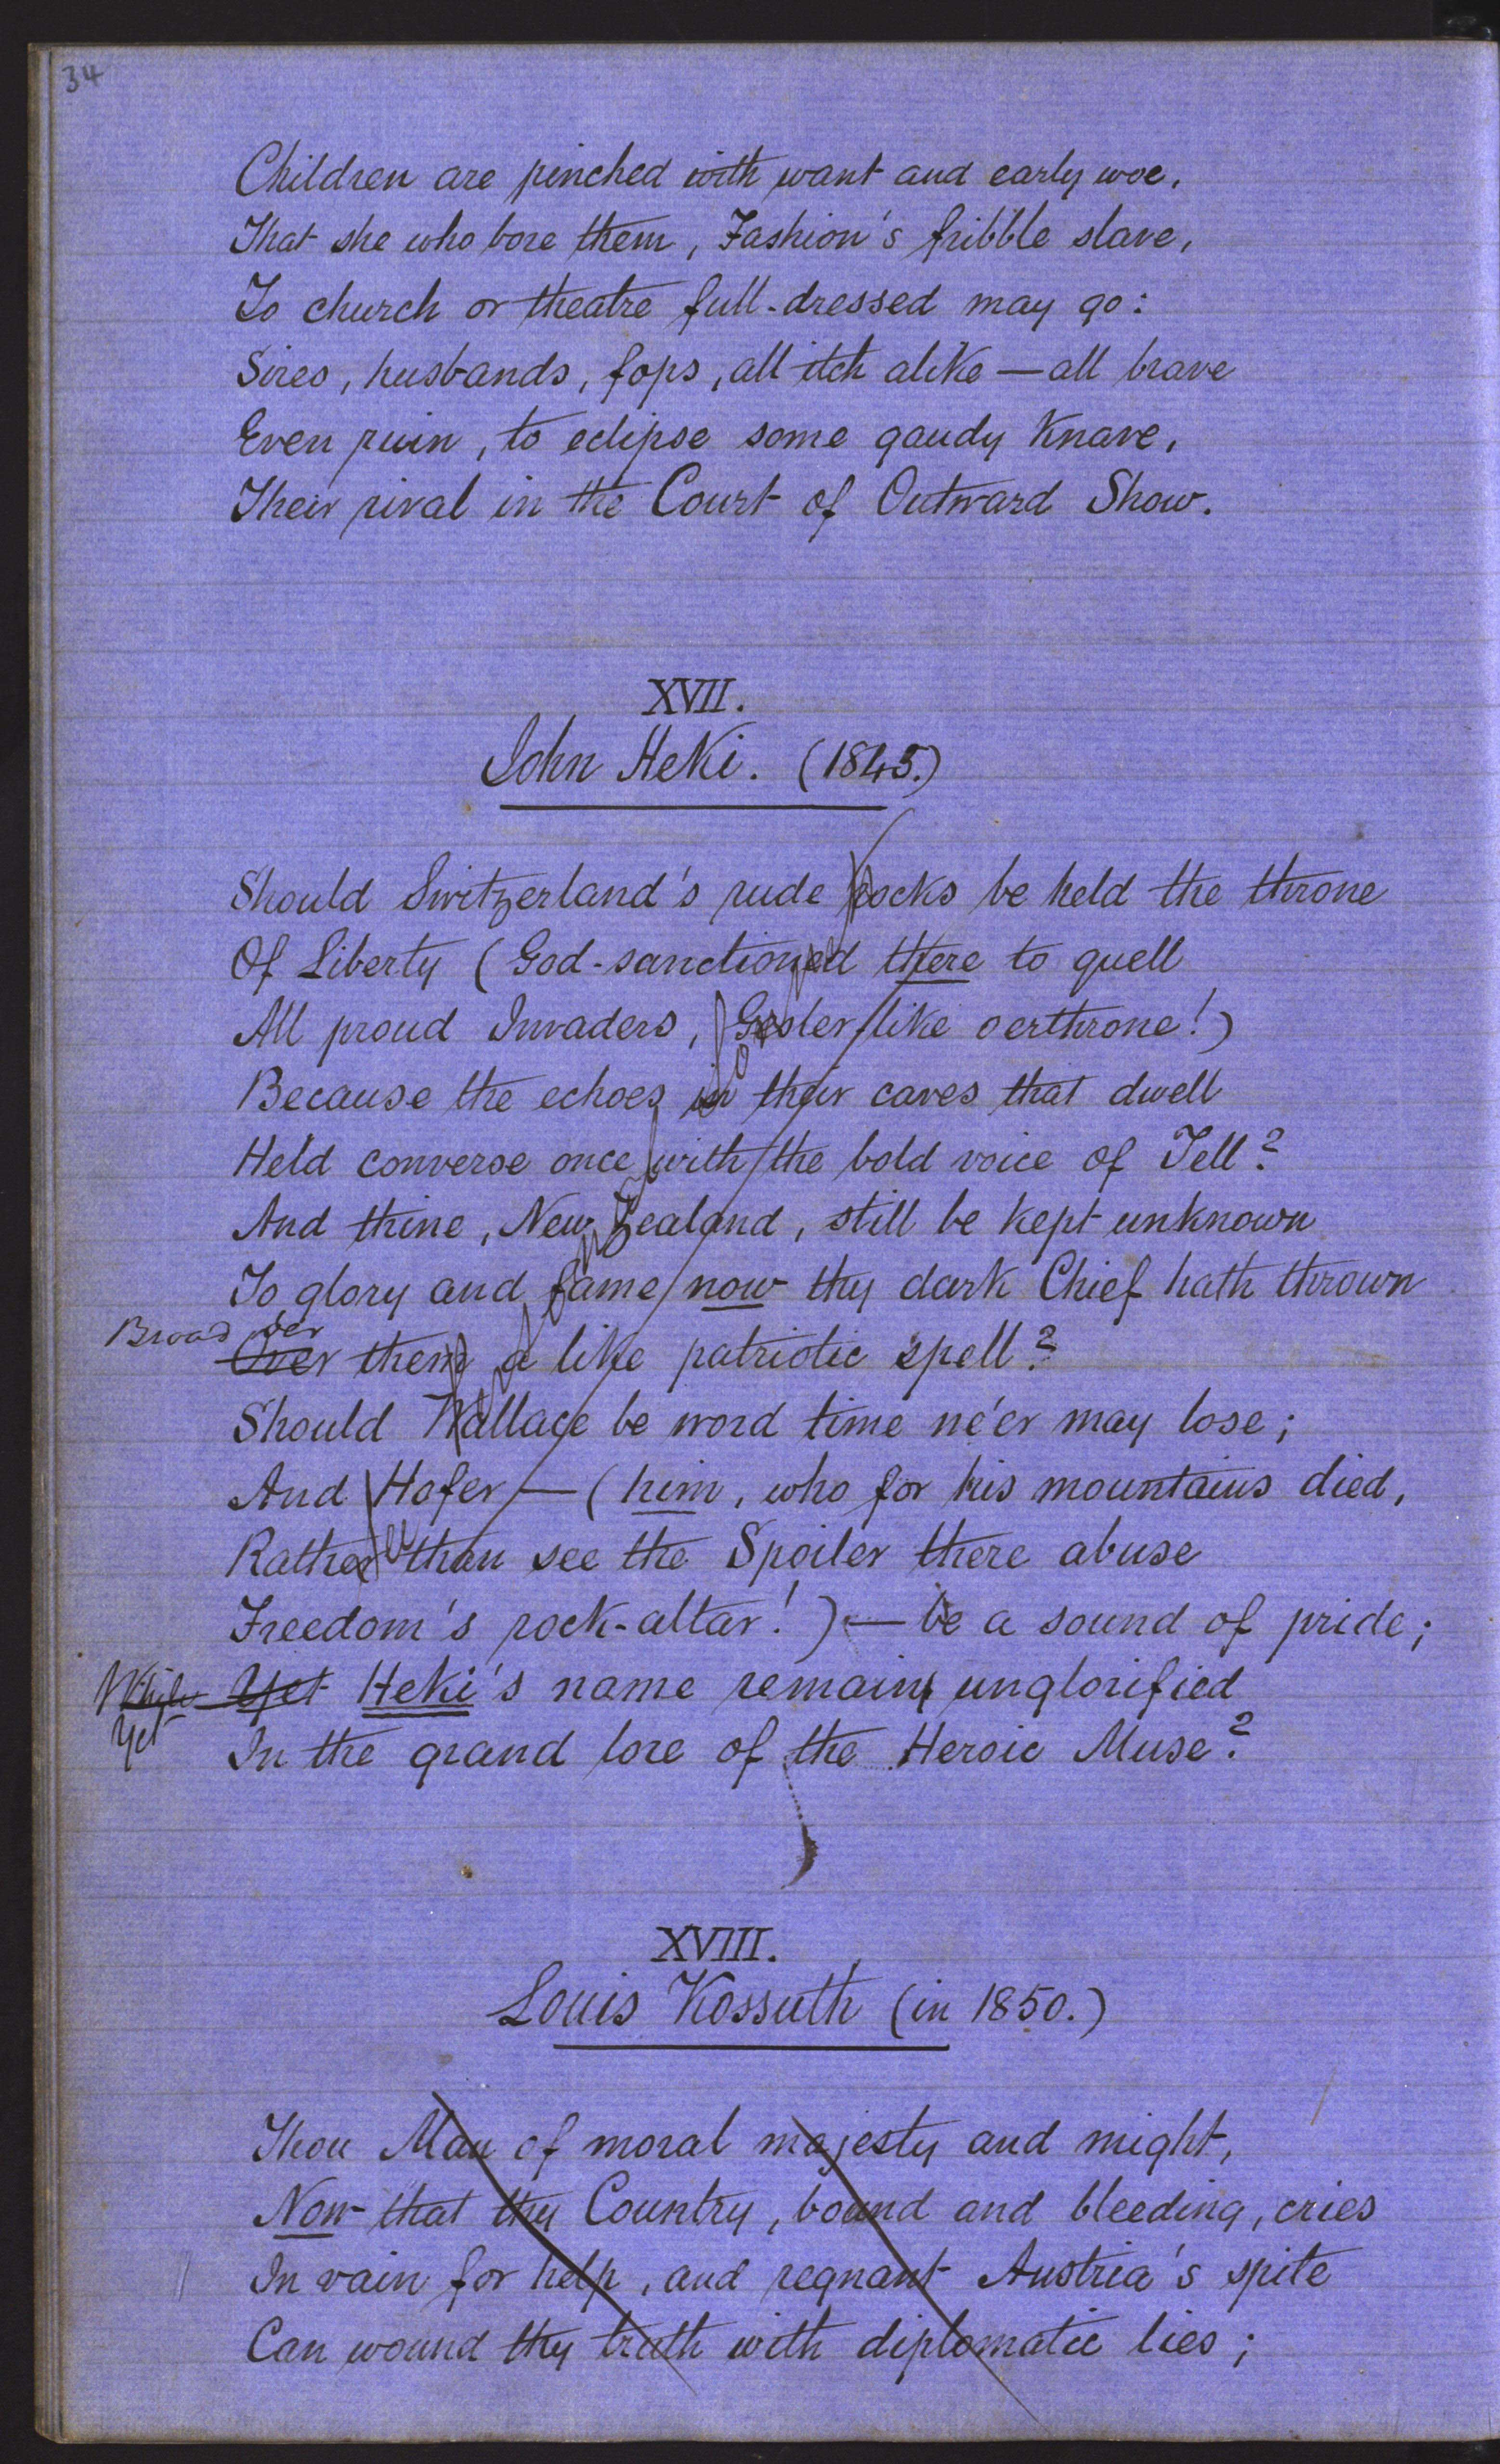 34
Children are pinched with want and early woe,
That she who bore them, Fashion's fribble slave,
To church or theatre full-dressed may go:
Sires, husbands, fops, all itch alike — all brave
Even ruin, to eclipse some gaudy Knave,
Their rival in the Court of Outward Show.
XVII.
John Heki. (1845.)
Should Switzerland's rude rocks be held the throne
Of Liberty (God-sanctioned there to quell
All proud Invaders, Gesler-like oerthrone!)
Because the echoes in their caves that dwell
Held converse once with the bold voice of Tell?
And thine, New Zealand, still be kept unknown
To glory and fame, now thy dark Chief hath thrown
Broad oer
Over them a like patriotic spell?
Should Wallace be word time ne'er may lose;
And Hofer — (him, who for his mountains died,
Rather than see the Spoiler there abuse
Freedom's rock-altar!) — be a sound of pride;
While Yet Heki's name remain unglorified
Yet
In the grand lore of the Heroic Muse?
XVIII.
Louis Kossuth (in 1850.)
Thou Man of moral majesty and might,
Now that thy Country, bound and bleeding, cries
In vain for help, and regnant Austria's spite
Can wound thy truth with diplomatic lies;